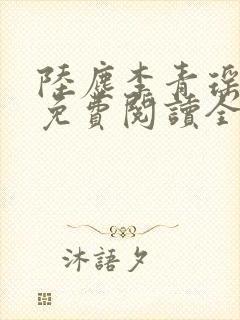 陸塵李青瑤
免費閱讀全
沐語夕